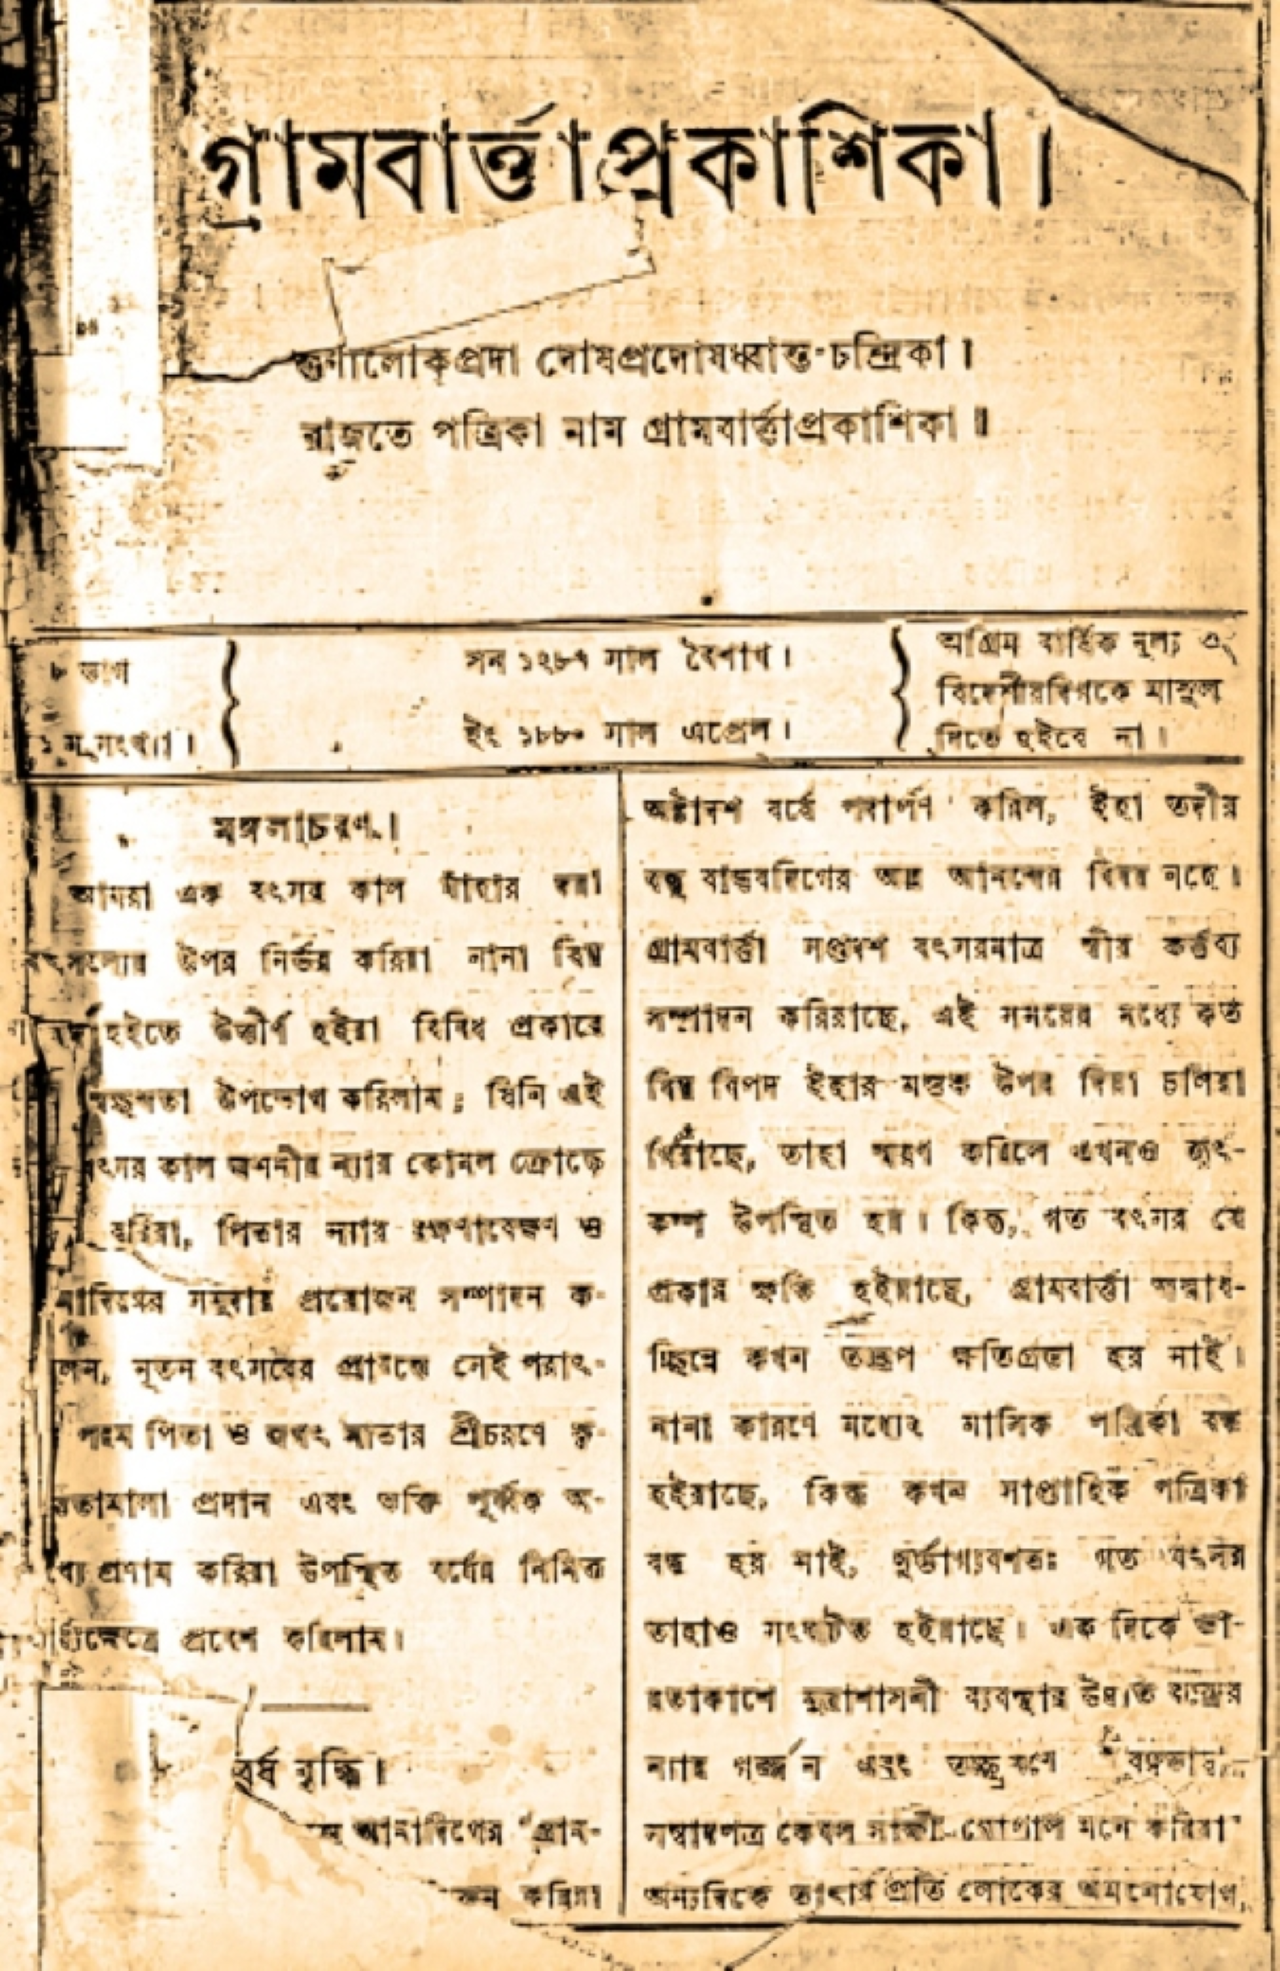 গ্রামবার্ত্তাপ্রকাশিকা।
গুণালোকপ্রদা দোষপ্রদোষধ্বান্ত-চন্দ্রিকা।
রাজতে পত্রিকা নাম গ্রামবার্ত্তাপ্রকাশিকা॥
৮ ভাগ
১ ম সংখ্যা।
সন ১২৮৭ সাল বৈশাখ।
ইং ১৮৮০ সাল এপ্রেল।
অগ্রিম বার্ষিক মূল্য ৩৲
বিদেশীয়দিগকে মাসুল
দিতে হইবে না।
মঙ্গলাচরণ।
আমরা এক বৎসর কাল যাঁহার দয়া
উপর নির্ভর করিয়া নানা বিঘ্ন
হইতে উত্তীর্ণ হইয়া বিবিধ প্রকারে
উপভোগ করিলাম; যিনি এই
বৎসর কাল জননীর ন্যায় কোমল ক্রোড়ে
করিয়া, পিতার ন্যায় রক্ষণাবেক্ষণ ও
সমুদায় প্রয়োজন সম্পাদন ক-
নূতন বৎসরের প্রারম্ভে সেই পরাৎ-
পরম পিতা ও জগৎ মাতার শ্রীচরণে কৃ-
প্রদান এবং ভক্তি পূর্ব্বক অ-
প্রণাম করিয়া উপস্থিত বর্ষের নিমিত্ত
প্রবেশ করিলাম।
বর্ষ বৃদ্ধি।
আমাদিগের "গ্রাম-
করিয়া
অষ্টাদশ বর্ষে পদার্পণ করিল, ইহা তদীয়
বন্ধু বান্ধবদিগের অল্প আনন্দের বিষয় নহে।
গ্রামবার্ত্তা সপ্তদশ বৎসরমাত্র স্বীয় কর্ত্তব্য
সম্পাদন করিয়াছে, এই সময়ের মধ্যে কত
বিঘ্ন বিপদ ইহার মস্তক উপর দিয়া চলিয়া
গিয়াছে, তাহা স্মরণ করিলে এখনও হৃৎ-
কম্প উপস্থিত হয়। কিন্তু, গত বৎসর যে
প্রকার ক্ষতি হইয়াছে, গ্রামবার্ত্তা জন্মাব-
চ্ছিন্নে কখন তদ্রূপ ক্ষতিগ্রস্তা হয় নাই।
নানা কারণে মধ্যে২ মাসিক পত্রিকা বন্ধ
হইয়াছে, কিন্তু কখন সাপ্তাহিক পত্রিকা
বন্ধ হয় নাই, দুর্ভাগ্যবশতঃ গত বৎসর
তাহাও সংঘটিত হইয়াছে। এক দিকে ভা-
রতাকাশে মুদ্রাশাসনী ব্যবস্থার উদ্যত বজ্রের
ন্যায় গর্জ্জন এবং তচ্ছ্রবণে
সম্বাদপত্র কেবল সাক্ষী-গোপাল মনে করিয়া
অন্যদিকে তাহার প্রতি লোকের অমনোযোগ,